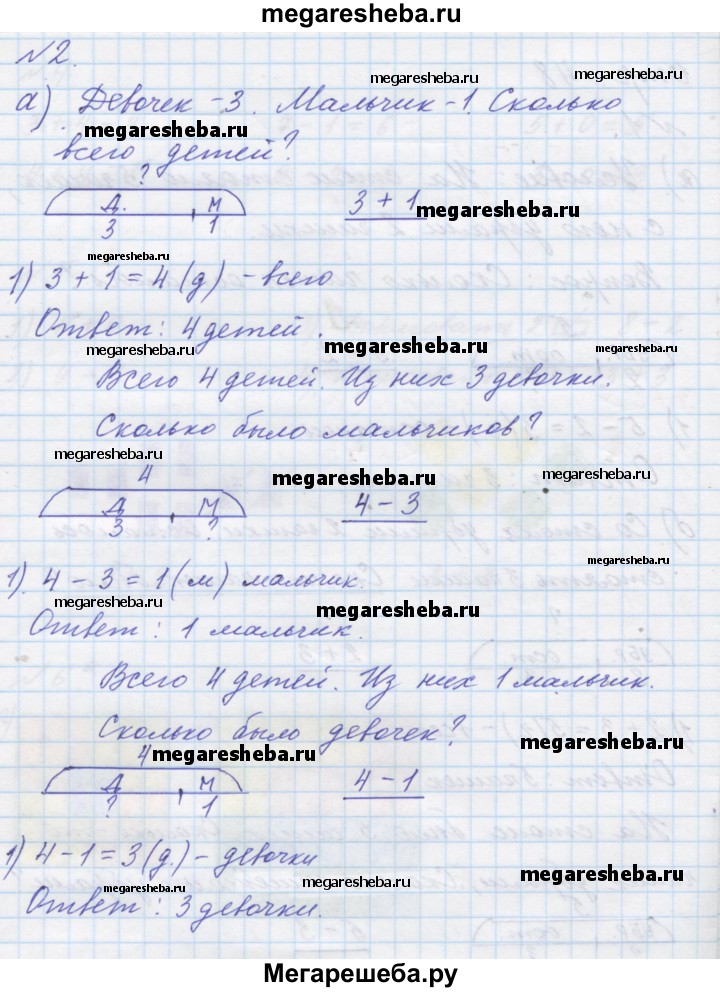 megaresheba.ru
№2.
megaresheba.ru
а) Девочек - 3. Мальчик - 1. Сколько
megaresheba.ru megaresheba.ru
всего детей?
?
Д. М 3 + 1 megaresheba.ru
3 1
megaresheba.ru
1) 3 + 1 = 4 (д) - всего
Ответ: 4 детей.
megaresheba.ru megaresheba.ru megaresheba.ru
Всего 4 детей. Из них 3 девочки.
Сколько было мальчиков?
megaresheba.ru
4 megaresheba.ru megaresheba.ru
Д М 4 - 3
3 ?
megaresheba.ru
1). 4 - 3 = 1 (м) мальчик.
megaresheba.ru megaresheba.ru
Ответ: 1 мальчик.
Всего 4 детей. Из них 1 мальчик.
Сколько было девочек?
4 megaresheba.ru megaresheba.ru
Д М 4 - 1
? 1
1) 4 - 1 = 3 (д.) - девочки
megaresheba.ru megaresheba.ru megaresheba.ru
Ответ: 3 девочки.
Мегарешеба.ру